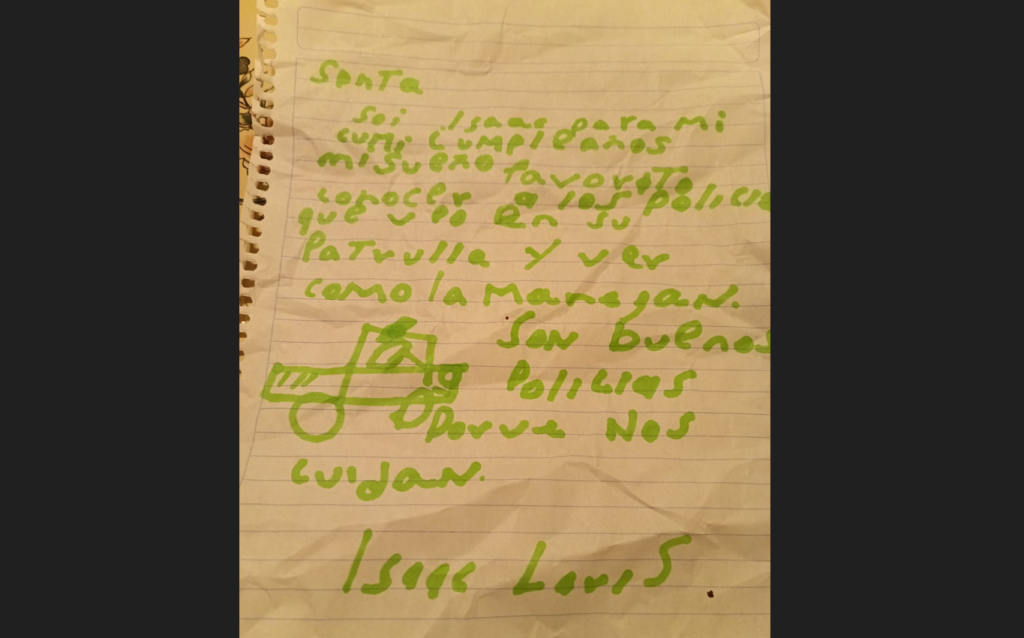 Santa
Soi Isaac para mi
cumi cumpleaños
mi sueño favorito
conocer a los policia
que veo en su
Patrulla y ver
como la Manejan.
Son buenos
Policias
Porue Nos
cuidan.
Isaac Louis